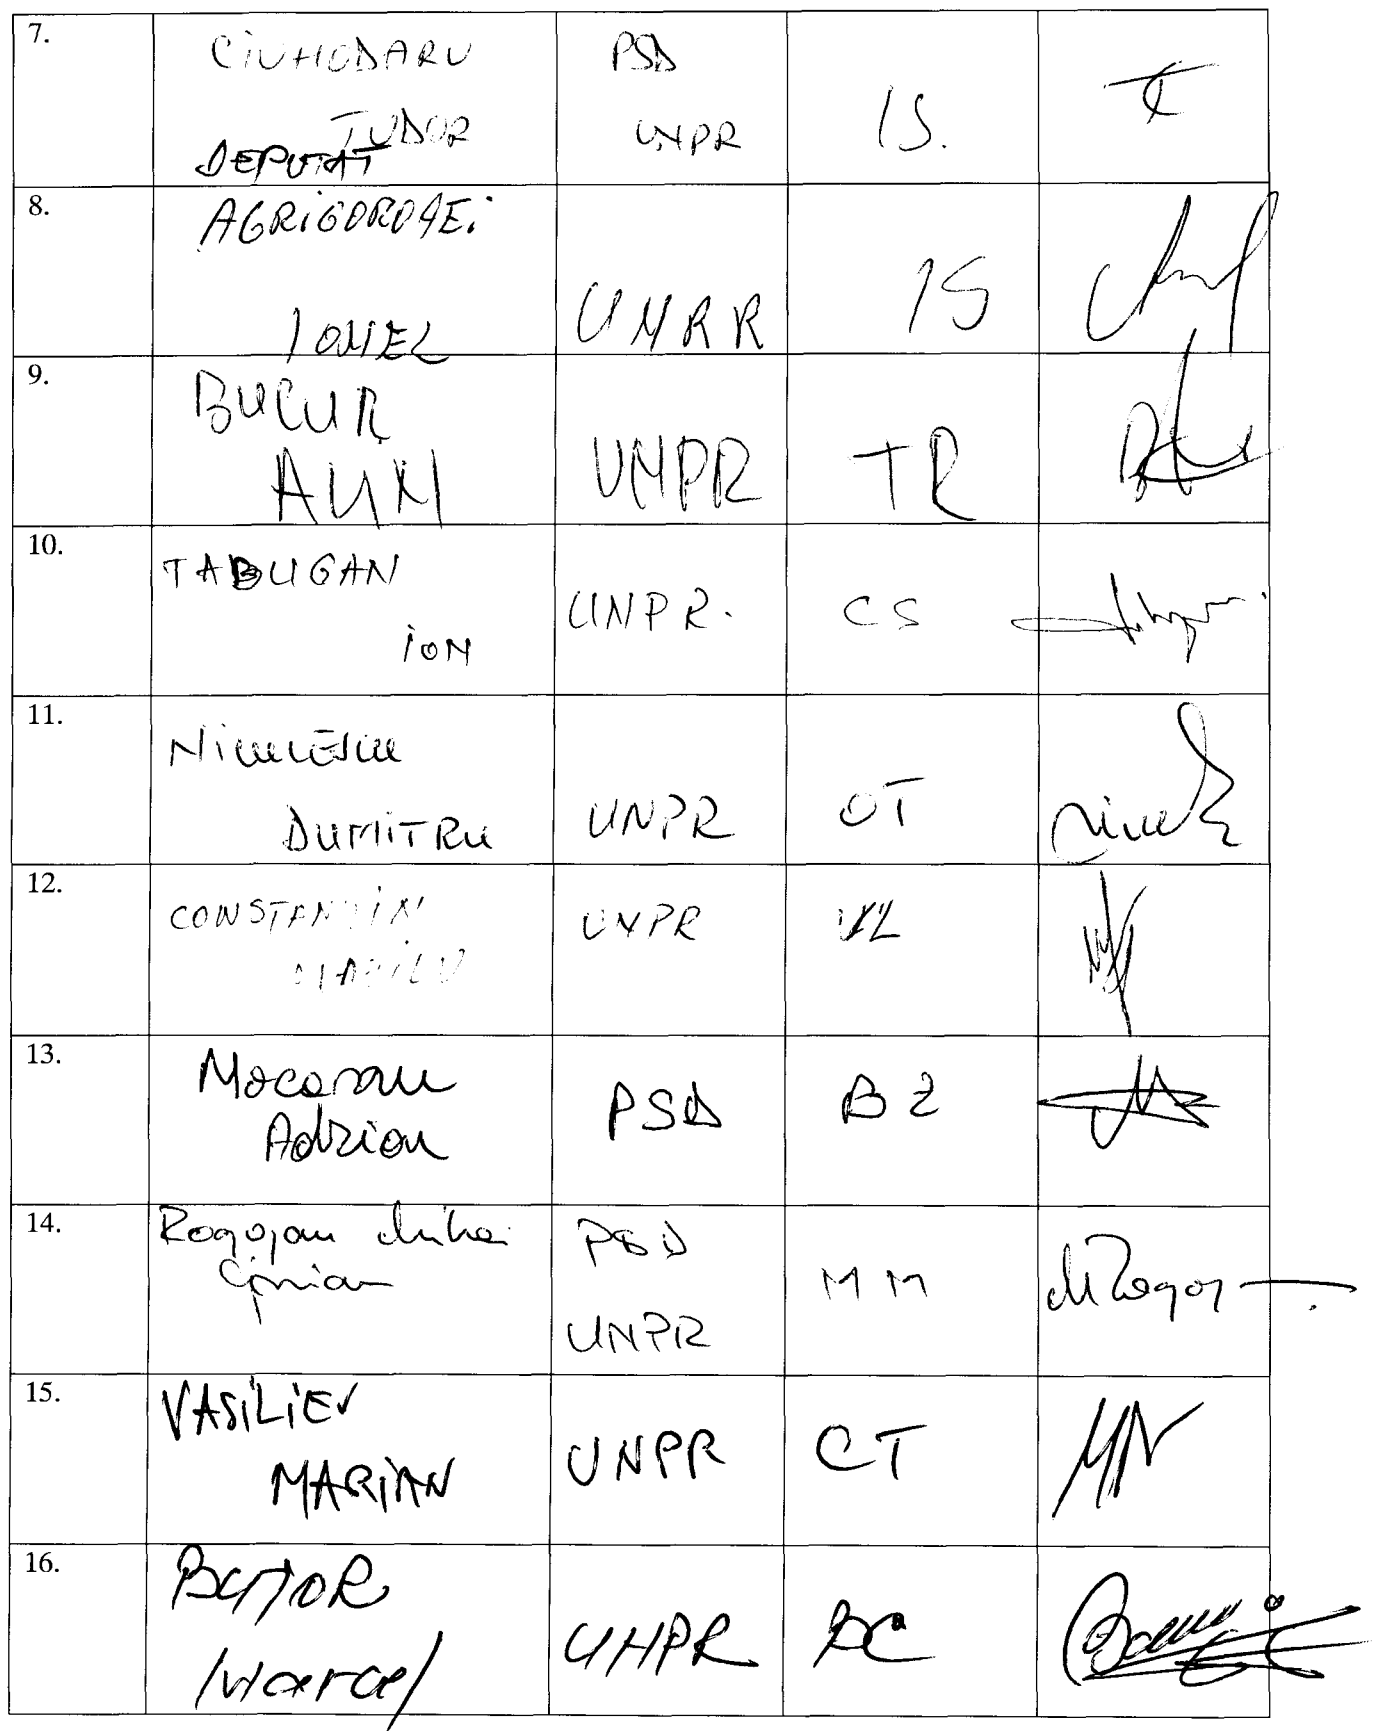 7. CIUHODARU PSD
TUDOR UNPR IS.
DEPUTAT
8. AGRIGOROAEi
IONEL UNPR IS
9. BUCUR
ALIN UNPR TR
10. TABUGAN
iON UNPR. CS
11. NicuLEScu
DUMiTRu UNPR OT
12. CONSTANTiN UNPR VL
13. Mocanu
Adrian PSD BZ
14. Rogojan Mihai PSD
Ciprian MM
UNPR
15. VASiLiEV
MARiAN UNPR CT
16. BUJOR
Marcel UNPR BC